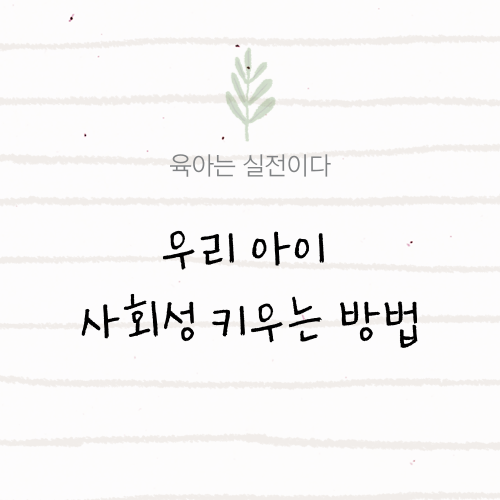 육아는 실전이다
우리 아이
사회성 키우는 방법